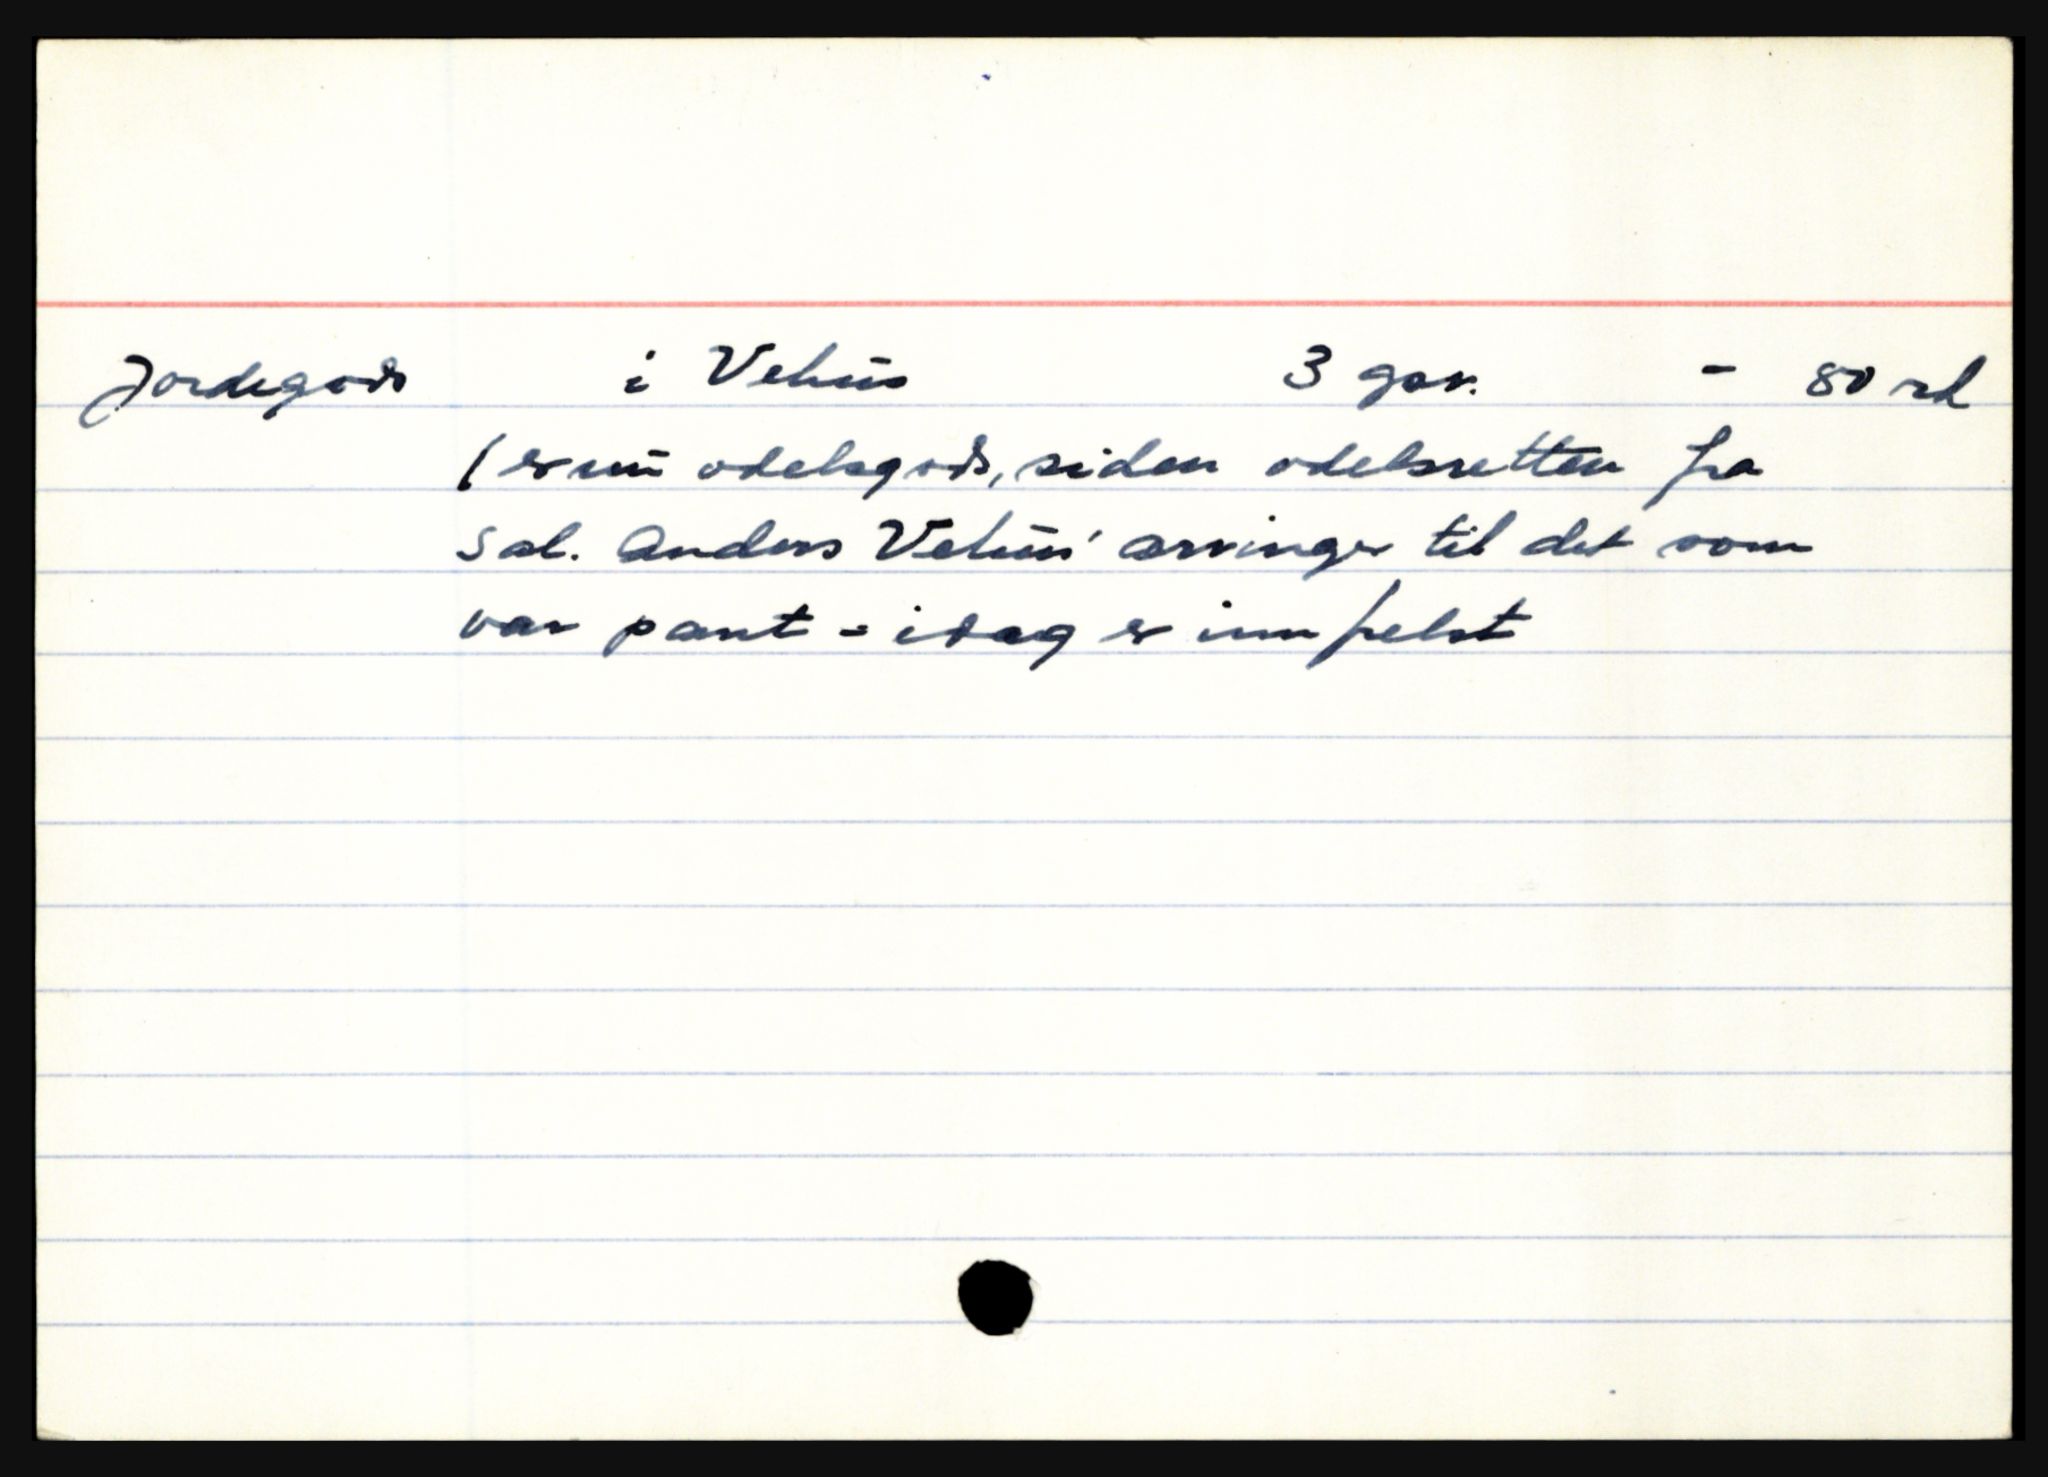 Jordegods i Vehus 3 gav. - 80 rd
(er nu odelsgods, siden odelsretten fra
Sal. Anders Vehus' arvinger til det som
var pant = idag er innfrelst